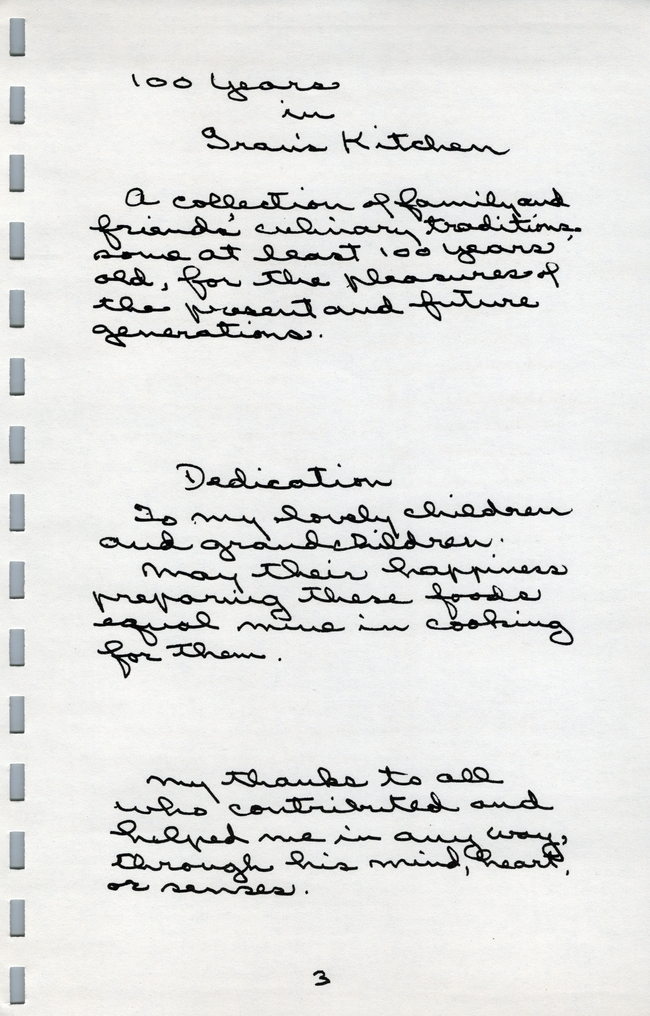 100 Years
in
Gran's Kitchen
A collection of family and
friends' culinary traditions,
some at least 100 years
old, for the pleasures of
the present and future
generations.
Dedication
To my lovely children
and grandchildren.
May their happiness
preparing these foods
equal mine in cooking
for them.
My thanks to all
who contributed and
helped me in any way,
through his mind, heart,
or senses.
3